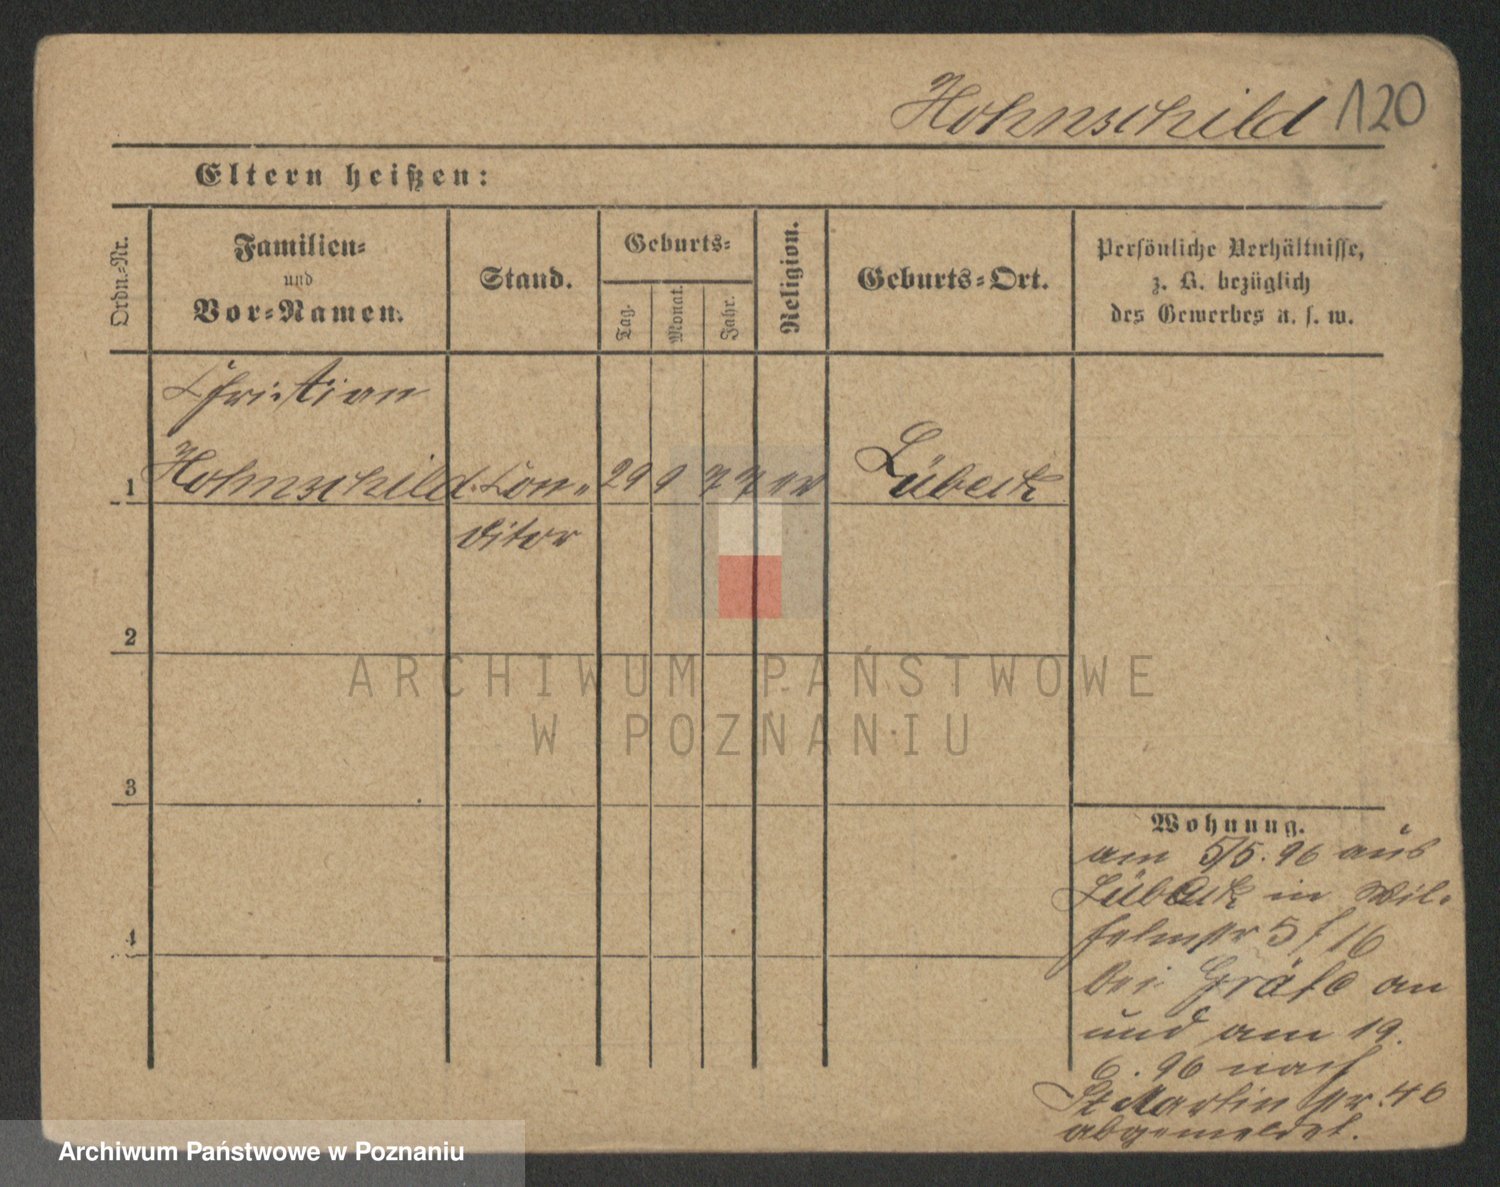 Hohnschild 120
Eltern heißen:
Ordn.-Nr.
Familien-
und
Vor-Namen.
Stand.
Geburts-
Tag.
Monat.
Jahr.
Religion.
Geburts-Ort.
Persönliche Verhältnisse,
z. B. bezüglich
des Gewerbes u. s. w.
Christian
1 Hohnschild Con- 29 9 77 ev Lübeck
ditor
2
3
4
Wohnung.
am 5/5. 96 aus
Lübeck in Wil-
helmstr 5 / 16
bei Gräfe an
und am 19.
6. 96 nach
St Martin str. 46
abgemeldet.
ARCHIWUM PAŃSTWOWE
W POZNANIU
Archiwum Państwowe w Poznaniu